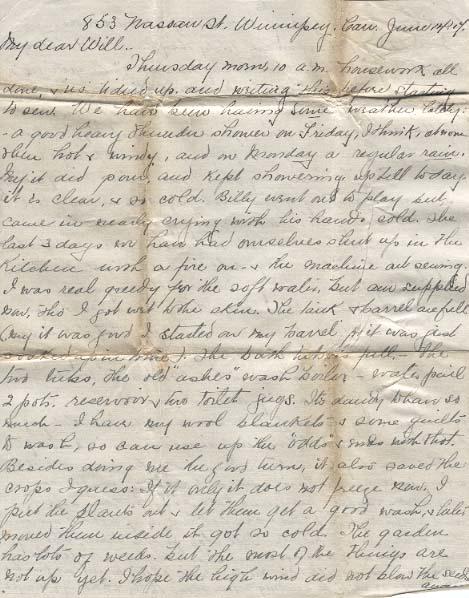 853 Nassau St. Winnipeg. Can. June 14/07.
My dear Will..
Thursday morn, 10 a.m. housework all
done & us tidied up. and writing this before starting
to sew. We have been having some weather lately
- a good heavy thunder shower on Friday, I think, at noon
then hot & windy, and on Monday a regular rain.
My it did pour, and kept showering up till to day.
it is clear, & so cold. Billy went out to play but
came in nearly crying with his hands cold. The
last 3 days we have had ourselves shut up in the
Kitchen with a fire on - & the machine out sewing.
I was real greedy for the soft water, but am supplied
now, tho I got wet to the skin. The tank & barrel are full
(my it was good I started on my barrel, it was just
time). The bath tub is full, - the
two tubs, the old "ashes" wash boiler - water pail
2 pots. reservoir & two toilet jugs. Its dandy to have so
much - I have my wool blankets & some quilts
to wash, so can use up the "odds" & ends with that.
Besides doing me the good turn, it also saved the
crops I guess: If it only it does not freeze now. I
put the plants out & let them get a good wash, & later
moved them inside it got so cold. The garden
has lots of weeds. but the most of the things are
not up yet. I hope the high wind did not blow the seeds
away